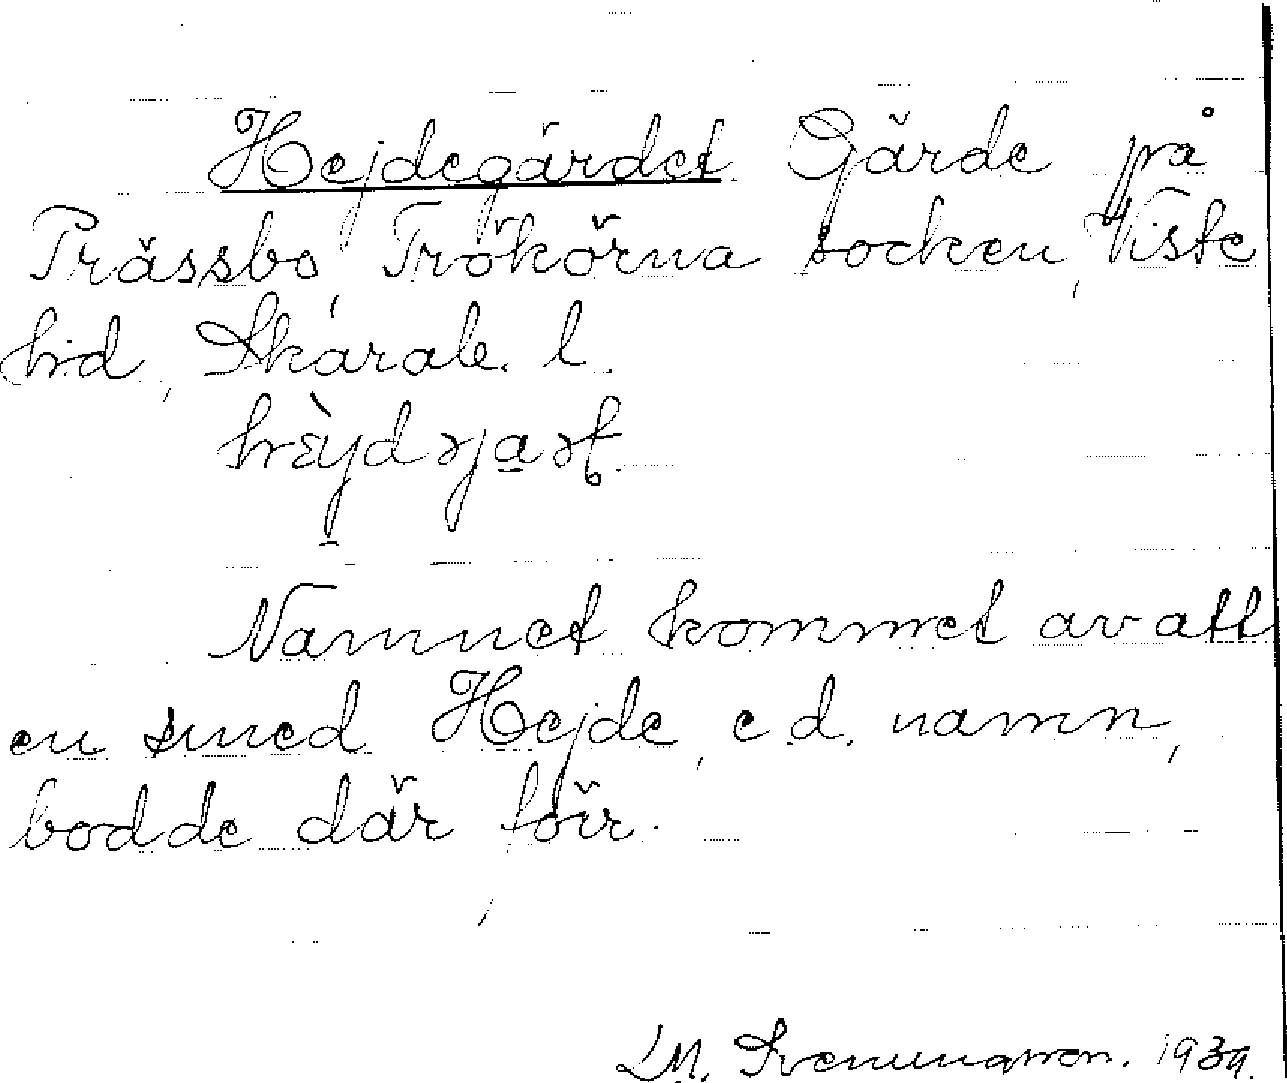 Hejdegärdet. Gärde på
Prässbo, Trökörna socken, Viste
hd, Skarab. l.
Namnet kommet av att
en smed Hejde, e.d. namn,
bodde där förr.
L.M. Svenungsson. 1939.